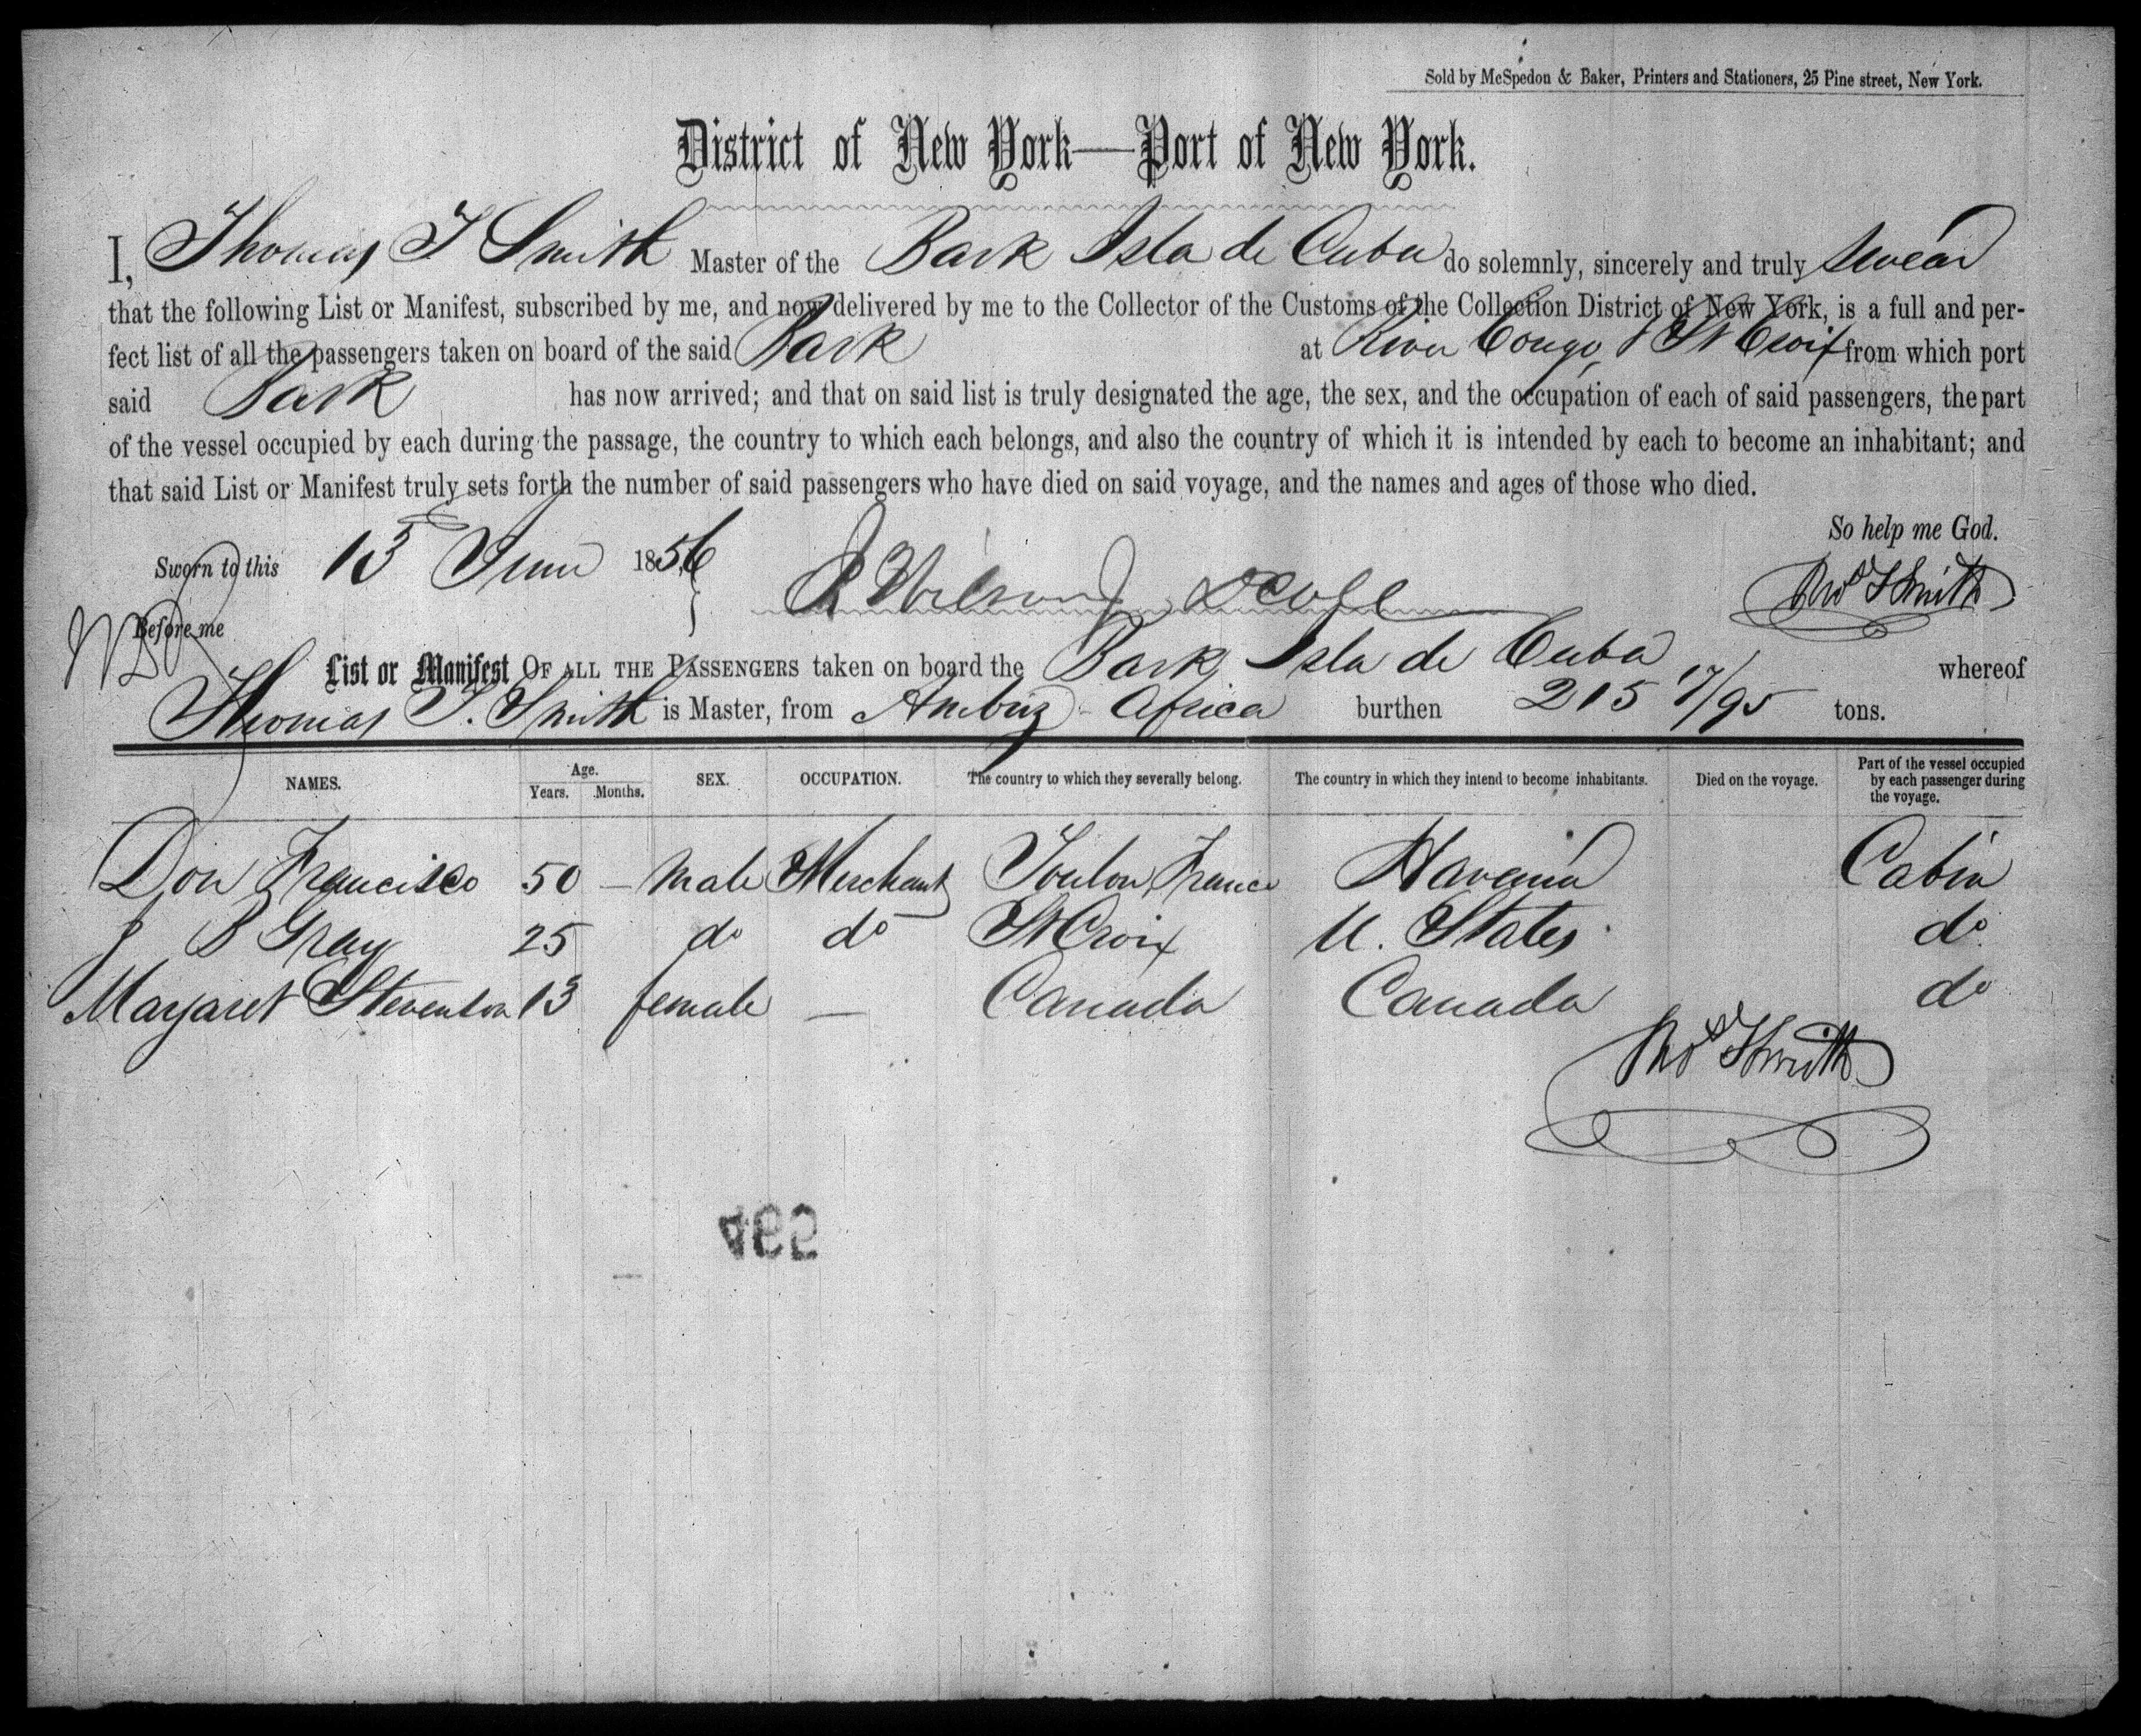 Sold by McSpedon & Baker, Printers and Stationers, 25 Pine street, New York.
District of New York—Port of New York.
I, Thomas J Smith Master of the Bark Isla de Cuba do solemnly, sincerely and truly swear
that the following List or Manifest, subscribed by me, and now delivered by me to the Collector of the Customs of the Collection District of New York, is a full and per-
fect list of all the passengers taken on board of the said Bark at River Congo, & St Croix from which port
said Bark has now arrived; and that on said list is truly designated the age, the sex, and the occupation of each of said passengers, the part
of the vessel occupied by each during the passage, the country to which each belongs, and also the country of which it is intended by each to become an inhabitant; and
that said List or Manifest truly sets forth the number of said passengers who have died on said voyage, and the names and ages of those who died.
So help me God.
Sworn to this 13 June 1856
Thos J Smith
Before me
List or Manifest OF ALL THE PASSENGERS taken on board the Bark Isla de Cuba whereof
Thomas J. Smith is Master, from Ambriz Africa burthen 215 17/95 tons.
NAMES. Age. Years. Months. SEX. OCCUPATION. The country to which they severally belong. The country in which they intend to become inhabitants. Died on the voyage. Part of the vessel occupied by each passenger during the voyage.
Don Francisco 50 — Male Merchant Toulon France Havana Cabin
J B Gray 25 do do St Croix U. States do
Margaret Stevenson 13 female — Canada Canada do
Thos J Smith